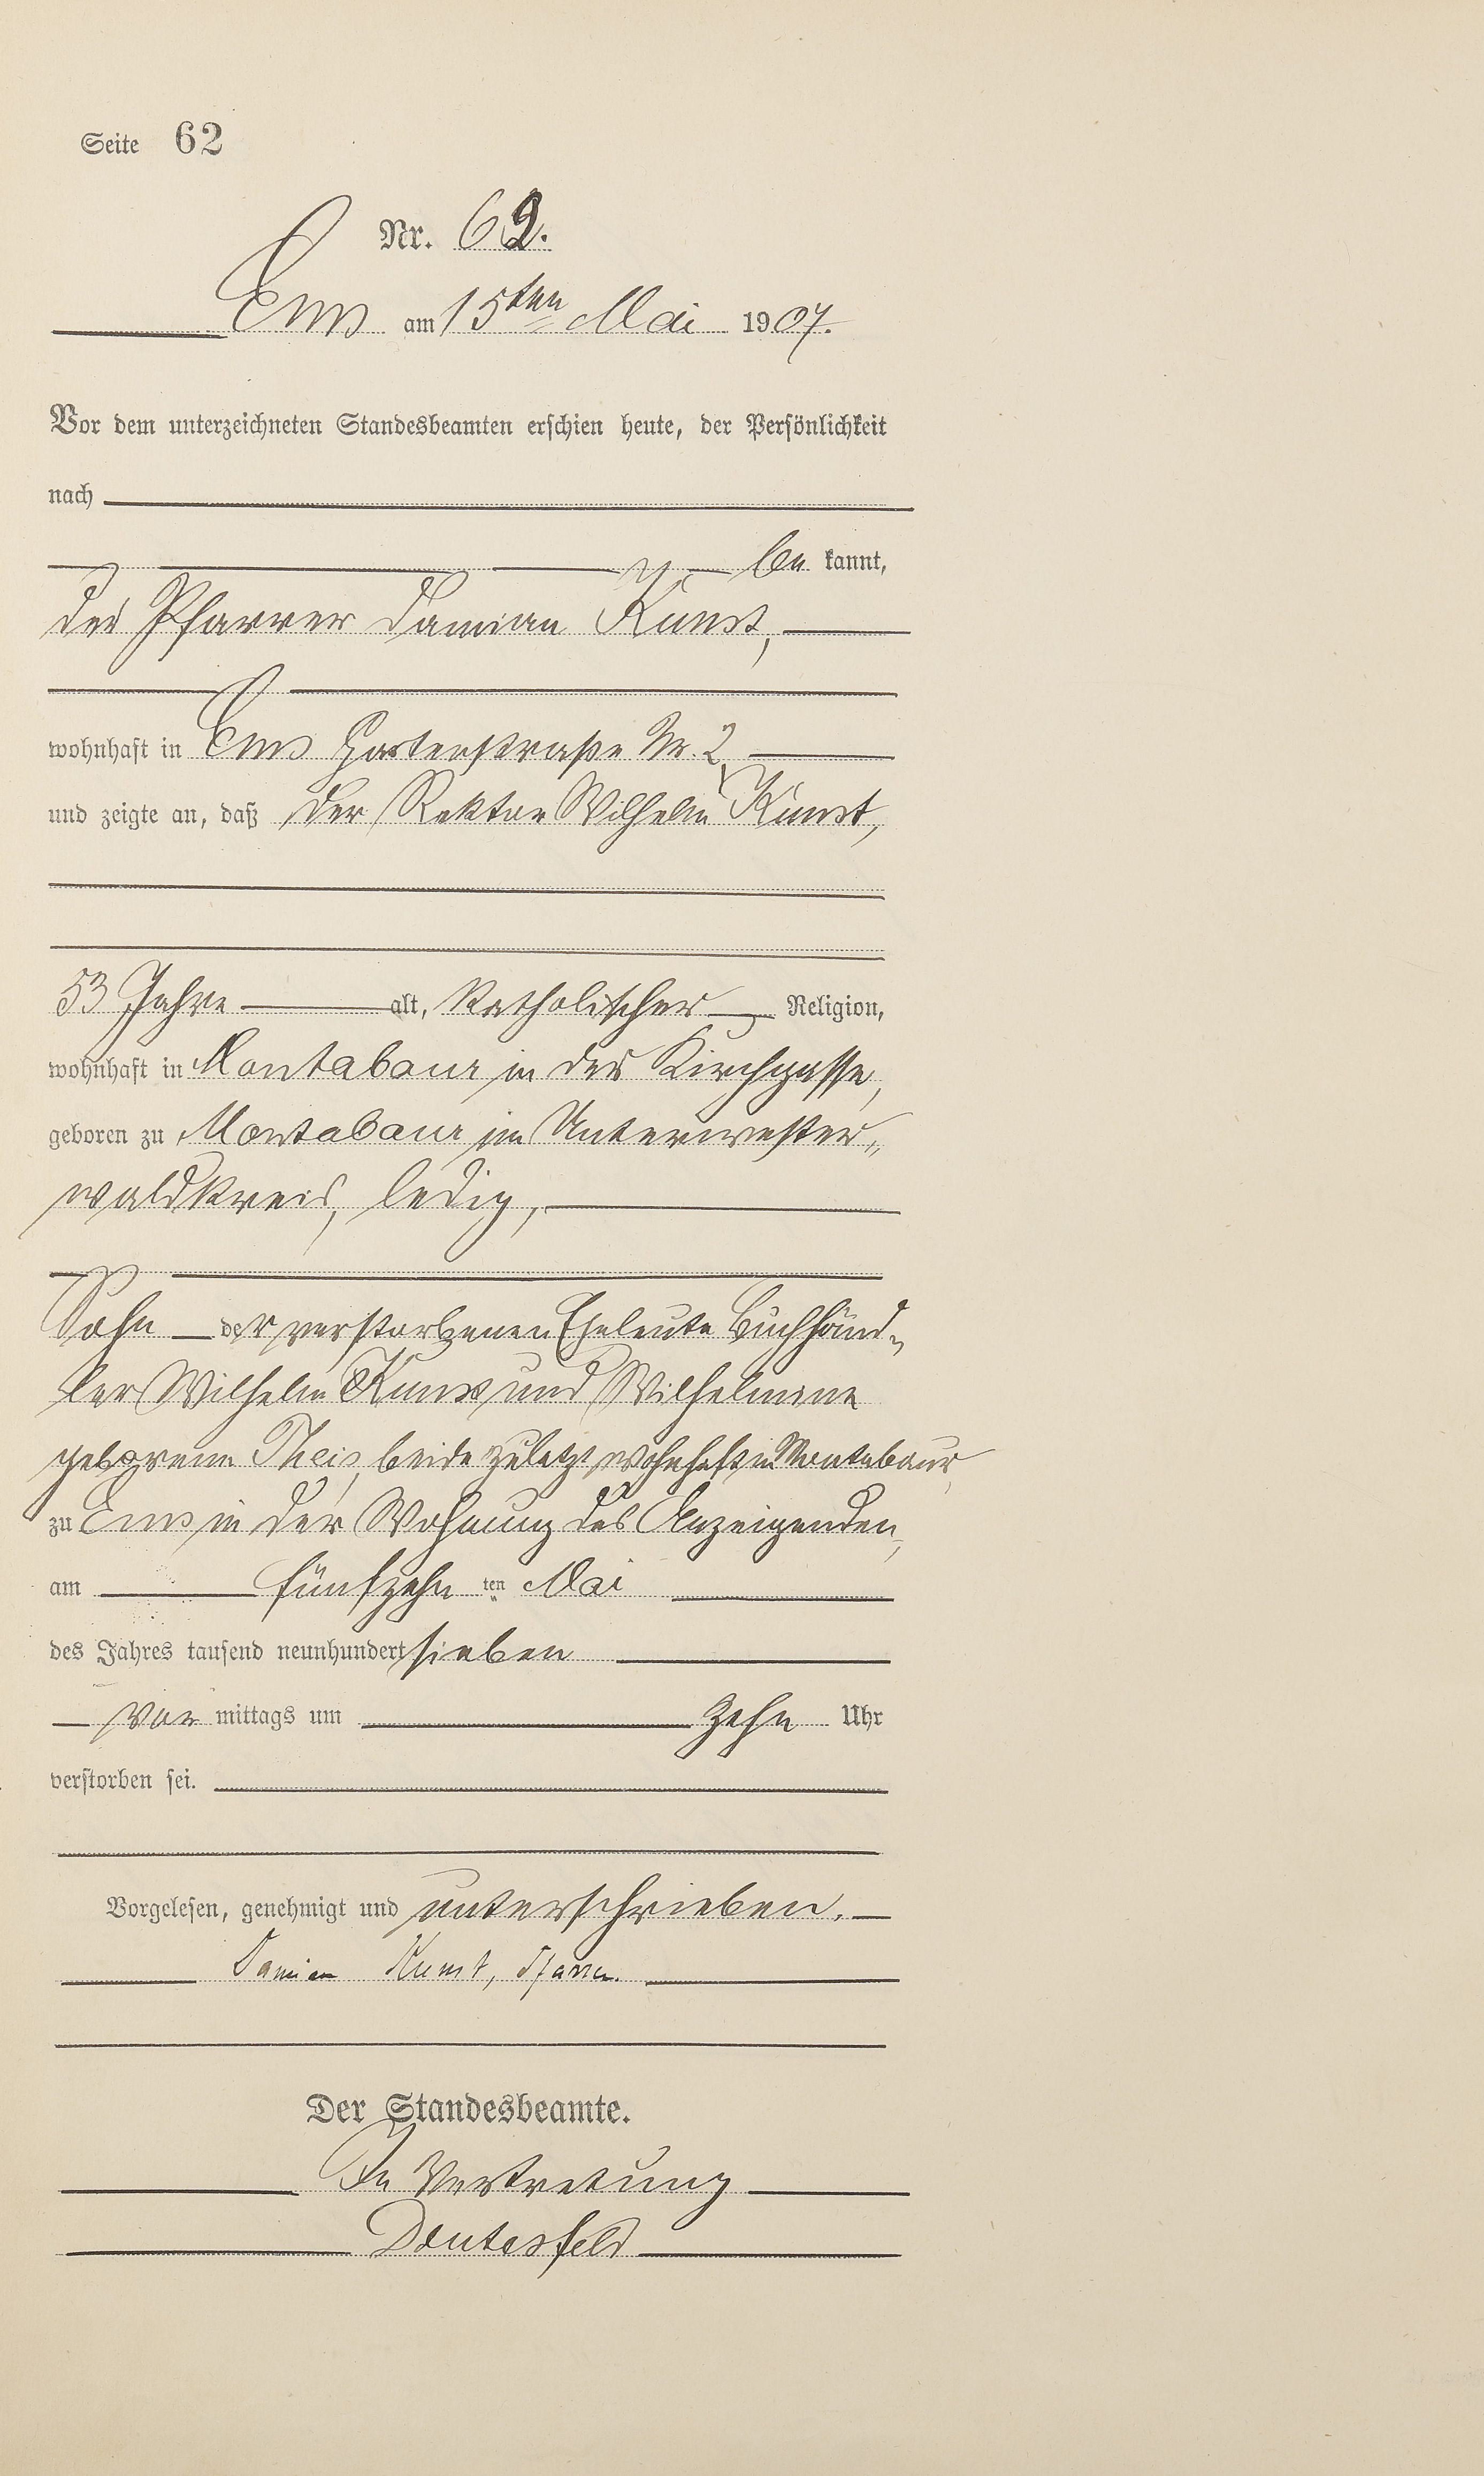 Seite 62
Nr. 62.
Ems am 15ten Mai 1907.
Vor dem unterzeichneten Standesbeamten erschien heute, der Persönlichkeit
nach
be kannt,
der Pfarrer Damian Kunst,
wohnhaft in Ems Gartenstraße Nr. 2,
und zeigte an, daß der Rektor Wilhelm Kunst,
53 Jahre alt, katholischer Religion,
wohnhaft in Montabaur in der Kirchgasse,
geboren zu Montabaur im Unterwester-
waldkreis, ledig,
Sohn der verstorbenen Eheleute Buchhänd-
ler Wilhelm Kunst und Wilhelmine
geborenen Theis, beide zuletzt wohnhaft in Montabaur,
zu Ems in der Wohnung des Anzeigenden,
am fünfzehn ten Mai
des Jahres tausend neunhundert sieben
vor mittags um zehn Uhr
verstorben sei.
Vorgelesen, genehmigt und unterschrieben.
Damian Kunst, Pfarrer.
Der Standesbeamte.
In Vertretung